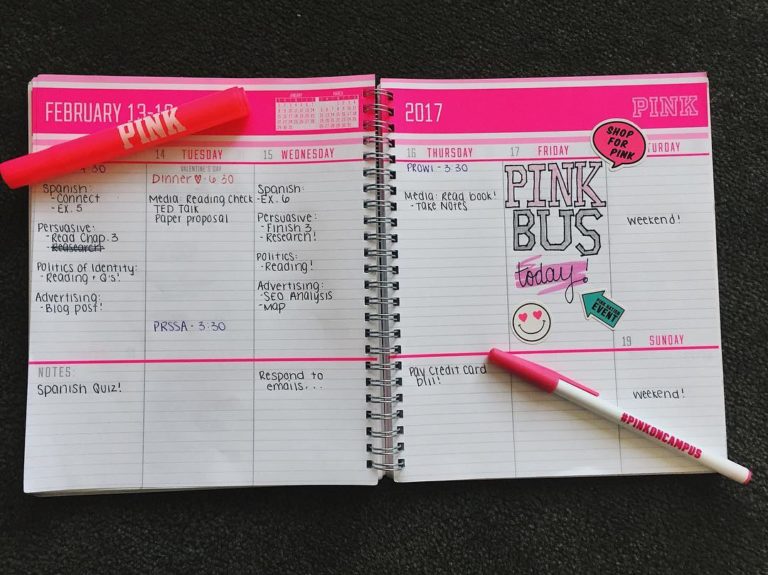 FEBRUARY 13-19
JANUARY
MARCH
2017
PINK
PINK
14 TUESDAY
VALENTINE'S DAY
Dinner ♡ - 6:30
Media: Reading Check
TED Talk
Paper proposal
PRSSA - 3:30
4:30
Spanish:
- Connect
- EX. 5
Persuasive:
- Read Chap. 3
- Reasearch
Politics of Identity:
- Reading + Q's!
Advertising:
- Blog post!
NOTES:
Spanish Quiz!
15 WEDNESDAY
Spanish:
- EX. 6
Persuasive:
- Finish 3
- Research!
Politics:
- Reading!
Advertising:
- SEO Analysis
- Map
Respond to
emails...
16 THURSDAY
PROWL - 3:30
Media: Read book!
- Take Notes
Pay credit card
bill!
17 FRIDAY
PINK
BUS
today!
PINK NATION
EVENT
SHOP
FOR
PINK
TURDAY
Weekend!
19 SUNDAY
Weekend!
#PINKONCAMPUS